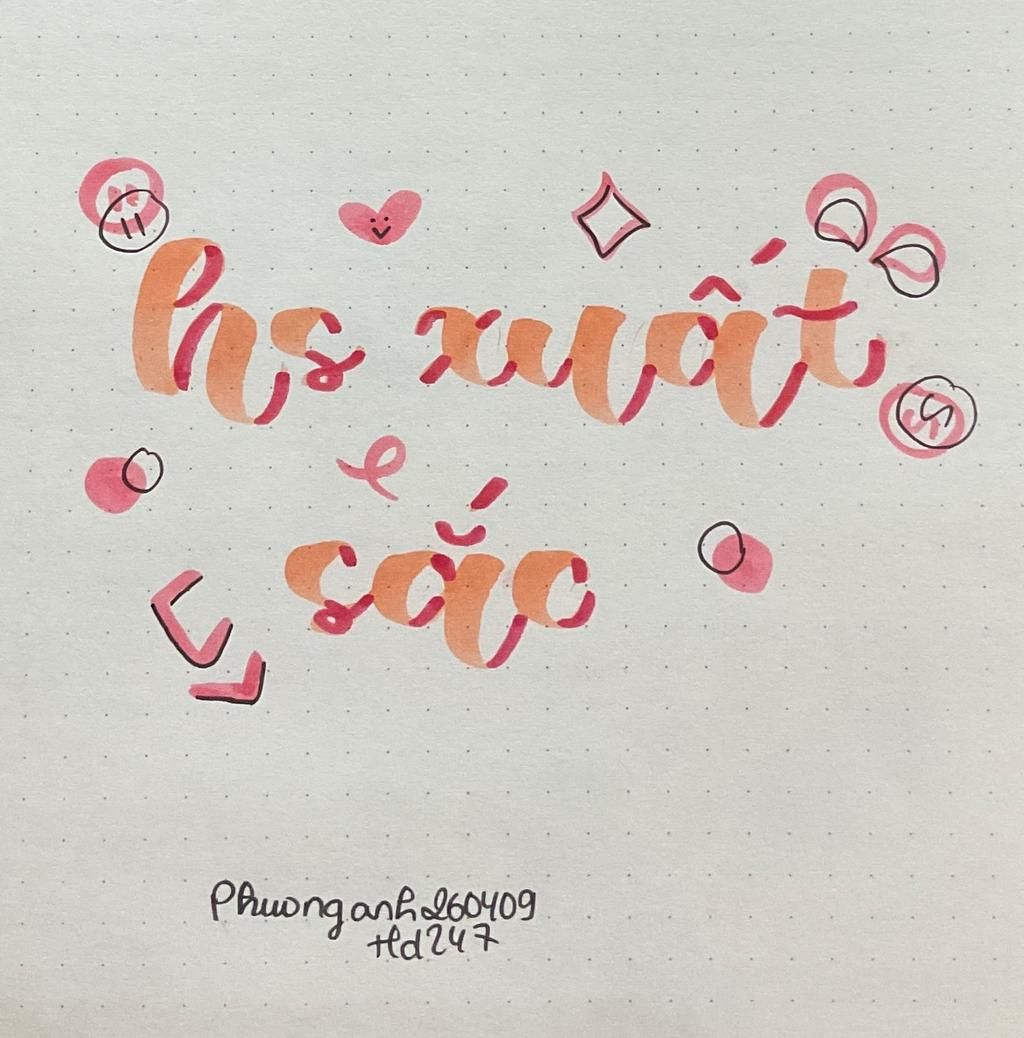 hs xuất
sắc
Phuonganh260409
Hd247